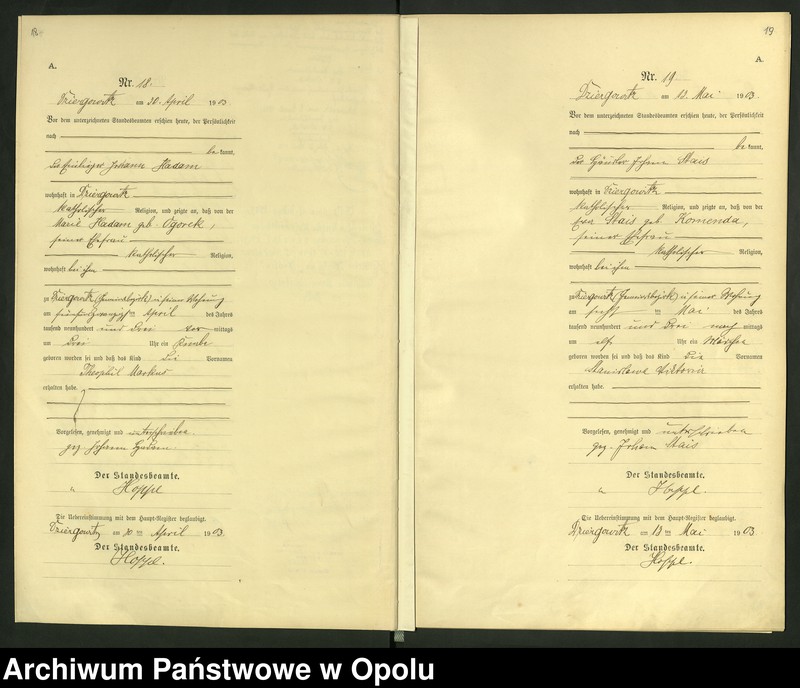 A.
Nr. 18.
Dziergowitz am 30. April 1903
Vor dem unterzeichneten Standesbeamten erschien heute, der Persönlichkeit
nach
be kannt,
Johann Hadam
wohnhaft in Dziergowitz
katholischer Religion, und zeigte an, daß von der
Marie Hadam geb. Ogorek,
seiner Ehefrau
katholischer Religion,
wohnhaft bei ihm
zu Dziergowitz (Gemeindebezirk) in seiner Wohnung
am April des Jahres
tausend neunhundert und drei vor mittags
um drei Uhr ein Knabe
geboren worden sei und daß das Kind die Vornamen
Theophil Markus
erhalten habe.
Vorgelesen, genehmigt und unterschrieben
gez. Johann Hadam
Der Standesbeamte.
Hoppe
Die Uebereinstimmung mit dem Haupt-Register beglaubigt.
Dziergowitz am 30 ten April 1903.
Der Standesbeamte.
Hoppe.
19
A.
Nr. 19
Dziergowitz am 13. Mai 1903.
Vor dem unterzeichneten Standesbeamten erschien heute, der Persönlichkeit
nach
be kannt,
Der Häusler Johann Stais
wohnhaft in Dziergowitz
katholischer Religion, und zeigte an, daß von der
Stais geb. Komenda,
seiner Ehefrau
katholischer Religion,
wohnhaft bei ihm
zu Dziergowitz (Gemeindebezirk) in seiner Wohnung
am ten Mai des Jahres
tausend neunhundert und drei nach mittags
um elf Uhr ein Mädchen
geboren worden sei und daß das Kind die Vornamen
Stanislawa Viktoria
erhalten habe.
Vorgelesen, genehmigt und unterschrieben
gez. Johann Stais
Der Standesbeamte.
Hoppe.
Die Uebereinstimmung mit dem Haupt-Register beglaubigt.
Dziergowitz am 13 ten Mai 1903
Der Standesbeamte.
Hoppe.
Archiwum Państwowe w Opolu